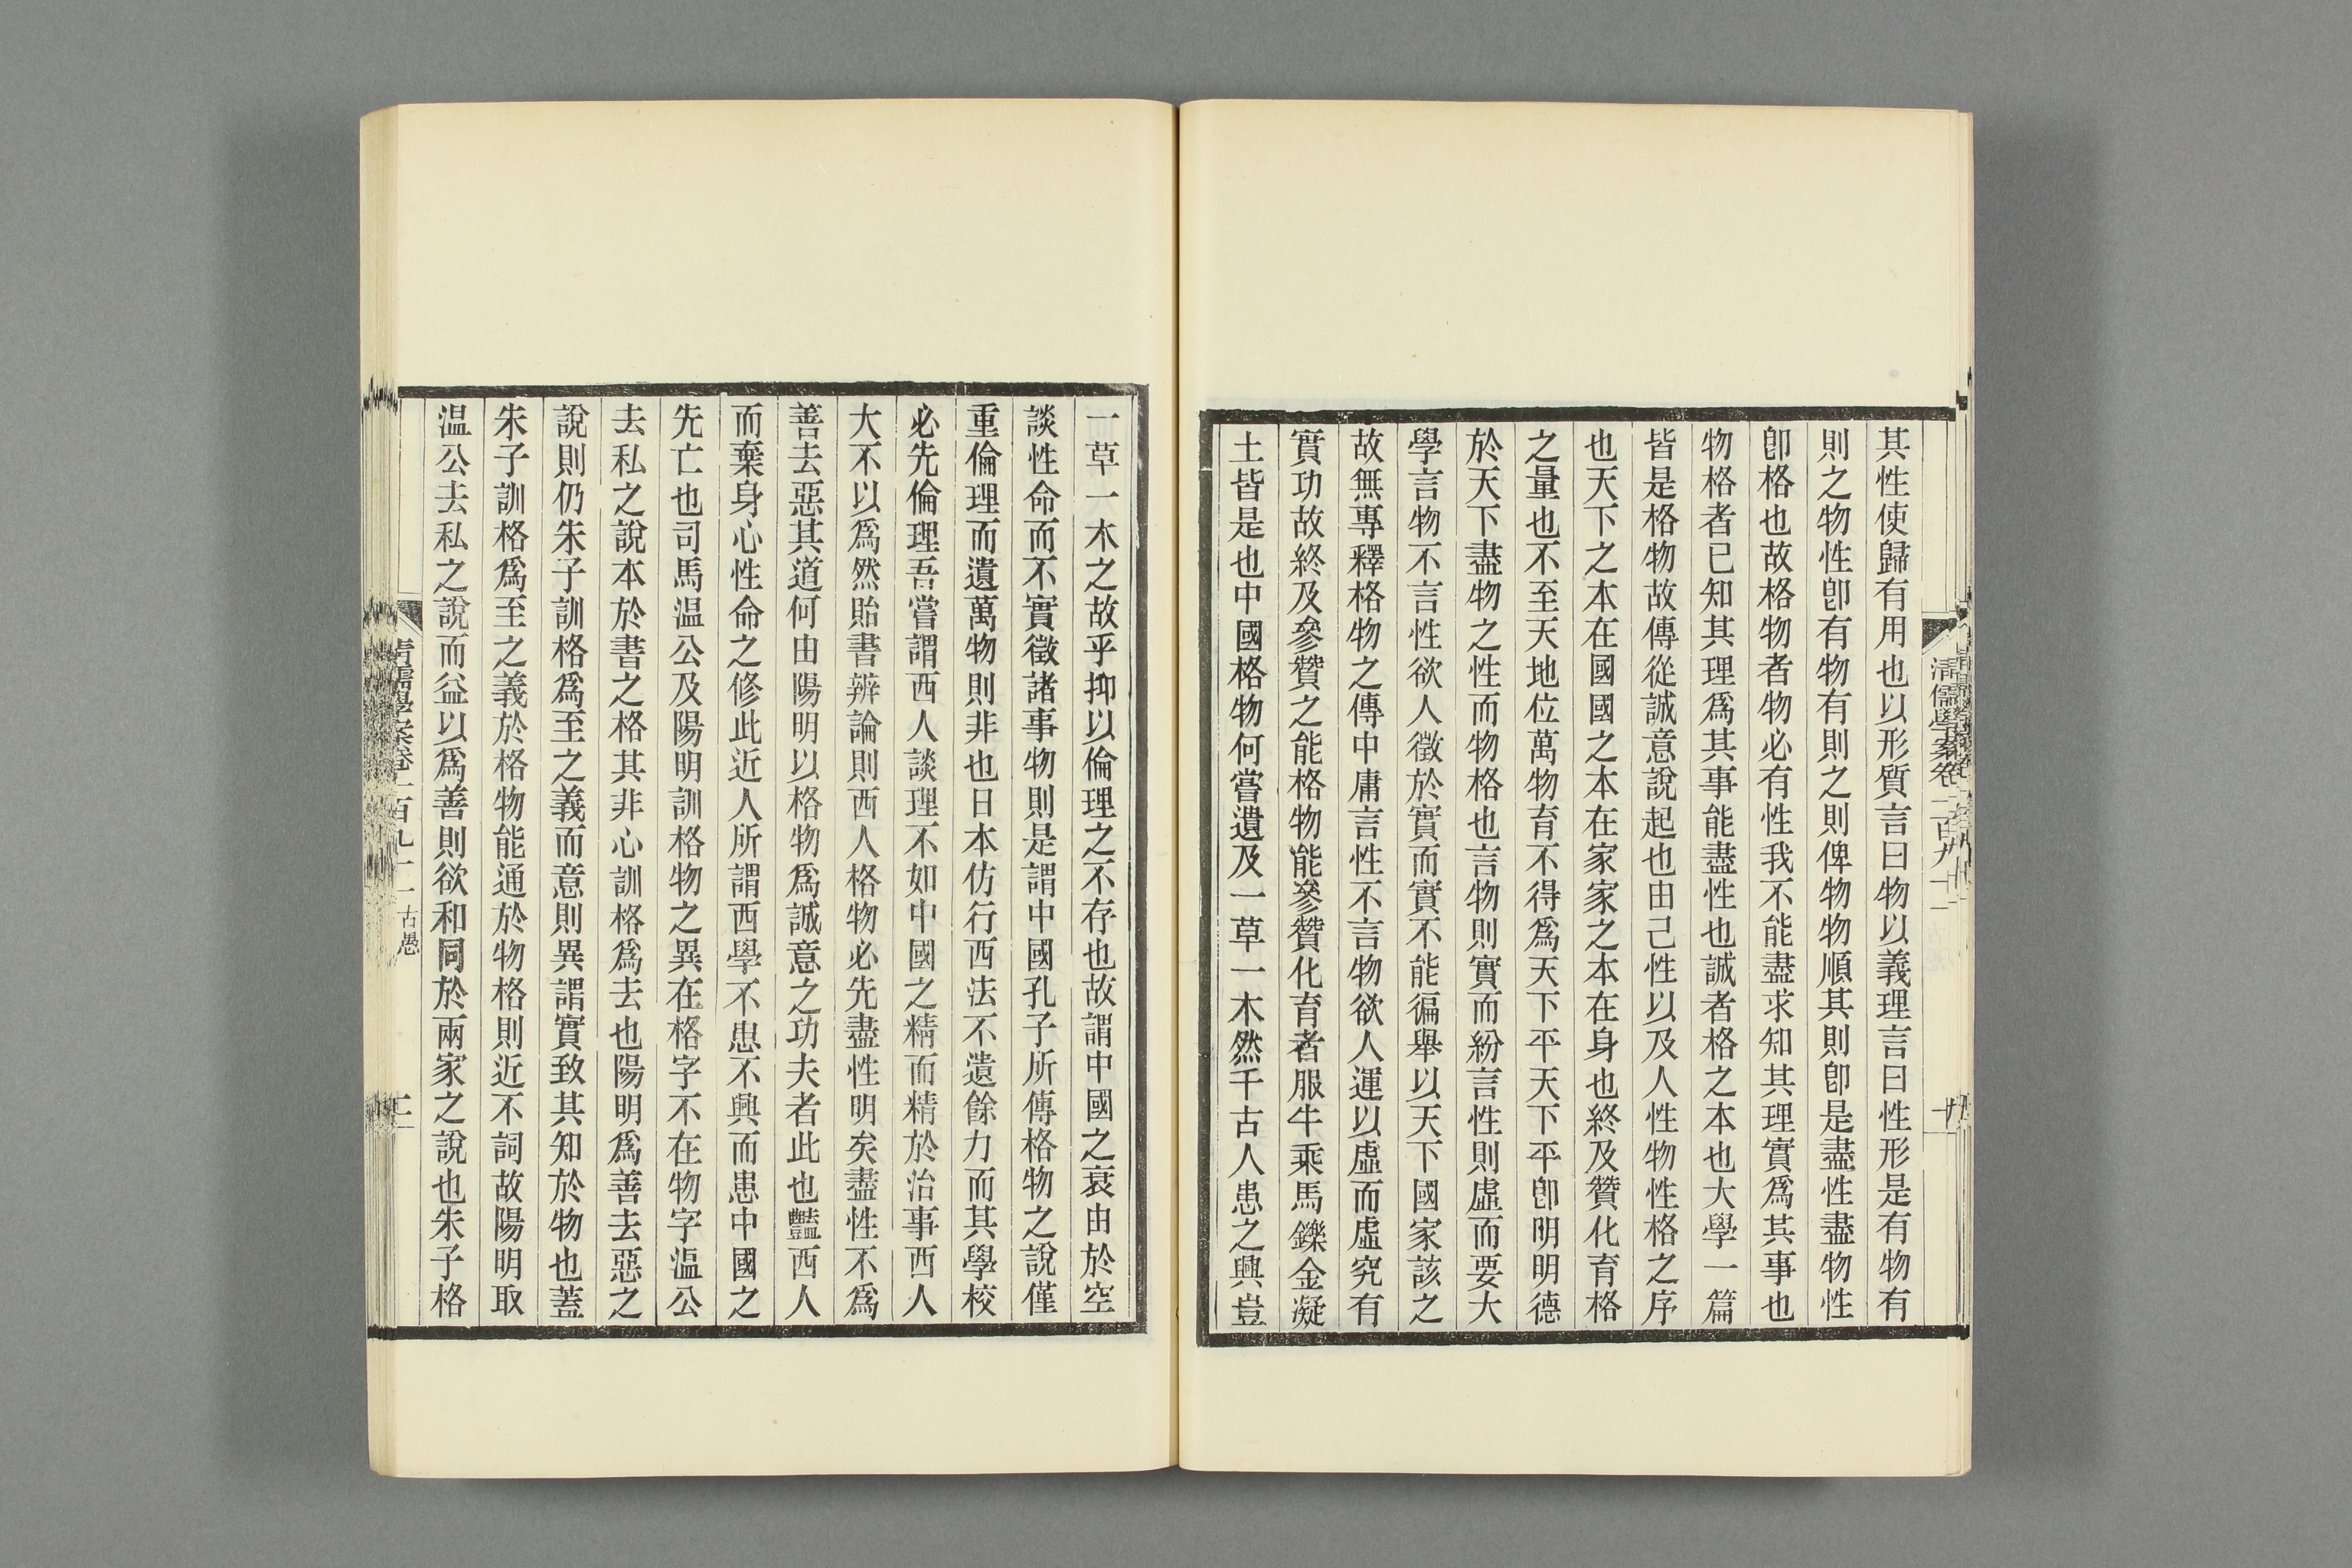 其性使歸有用也以形質言曰物以義理言曰性形是有物有
則之物性卽有物有則之則俾物物順其則卽是盡性盡物性
卽格也故格物者物必有性我不能盡求知其理實爲其事也
物格者已知其理爲其事能盡性也誠者格之本也大學一篇
皆是格物故傳從誠意說起也由己性以及人性物性格之序
也天下之本在國國之本在家家之本在身也終及贊化育格
之量也不至天地位萬物育不得爲天下平天下平卽明明德
於天下盡物之性而物格也言物則實而紛言性則虛而要大
學言物不言性欲人徵於實而實不能徧舉以天下國家該之
故無專釋格物之傳中庸言性不言物欲人運以虛而虛究有
實功故終及參贊之能格物能參贊化育者服牛乘馬鑠金凝
土皆是也中國格物何嘗遺及一草一木然千古人患之興豈
清儒學案卷一百九十一
一草一木之故乎抑以倫理之不存也故謂中國之衰由於空
談性命而不實徵諸事物則是謂中國孔子所傳格物之說僅
重倫理而遺萬物則非也日本仿行西法不遺餘力而其學校
必先倫理吾嘗謂西人談理不如中國之精而精於治事西人
大不以爲然貽書辨論則西人格物必先盡性明矣盡性不爲
善去惡其道何由陽明以格物爲誠意之功夫者此也豔西人
而棄身心性命之修此近人所謂西學不患不興而患中國之
先亡也司馬溫公及陽明訓格物之異在格字不在物字溫公
去私之說本於書之格其非心訓格爲去也陽明爲善去惡之
說則仍朱子訓格爲至之義而意則異謂實致其知於物也蓋
朱子訓格爲至之義於格物能通於物格則近不詞故陽明取
溫公去私之說而益以爲善則欲和同於兩家之說也朱子格
清儒學案卷一百九十一 古愚